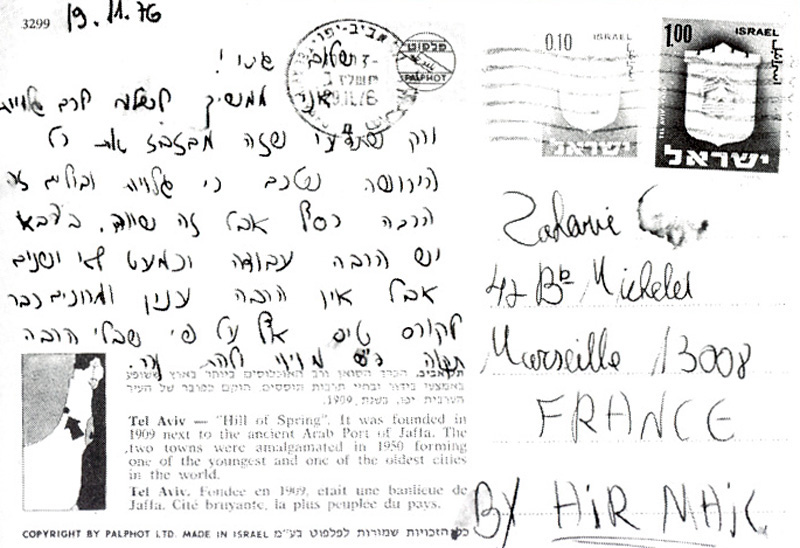 3299
19.11.76
שלום
אני ממשיך לשלוח לך גלויות
ורק שתדעי שזה מבזבז את כל
הירושה כי גלויות ובולים זה
הרבה כסף אבל זה שווה. בצבא
יש הרבה עבודה וכמעט לא ישנים
אבל אין הרבה ענין כבר
לקורס טיס אף על פי שבלי הרבה
תל־אביב. הכרך הסואן ורב האוכלוסים ביותר בארץ ושופע
באמצעי בידור ובחיי תרבות תוססים. הוקם כפרבר של העיר
הערבית יפו, בשנת 1909.
Tel Aviv — "Hill of Spring". It was founded in
1909 next to the ancient Arab Port of Jaffa. The
two towns were amalgamated in 1950 forming
one of the youngest and one of the oldest cities
in the world.
Tel Aviv. Fondée en 1909, etait une banlieue de
Jaffa. Cité bruyante, la plus peuplée du pays.
COPYRIGHT BY PALPHOT LTD. MADE IN ISRAEL כל הזכויות שמורות לפלפוט בע"מ
תל אביב-יפו
פלפוט
PALPHOT
0.10 ISRAEL
ישראל
1.00 ISRAEL
TEL AVIV
ישראל
Zaharie
42 Bd Michelet
Marseille 13008
FRANCE
BY AIR MAIL